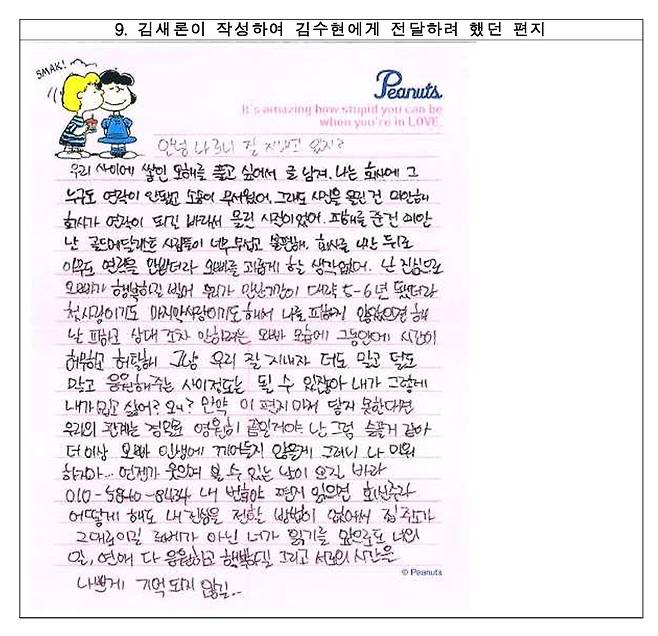 9. 김새론이 작성하여 김수현에게 전달하려 했던 편지
SMAK!
Peanuts
It's amazing how stupid you can be
when you're in LOVE.
안녕 나 잘 지내고 있지?
우리 사이에 쌓인 오해를 풀고 싶어서 글 남겨. 나는 회사에 그
누구도 연락이 안됐고 소송이 무서웠어. 그래도 사진을 올린 건 미안해
회사가 연락이 되길 바라서 올린 사진이었어. 피해를 준건 미안
난 골드메달리스트 사람들이 너무 무섭고 불편해. 회사를 나간 뒤로
아무도 연락을 안받더라 오빠를 괴롭게 할 생각없어. 난 진심으로
오빠가 행복하길 빌어 우리가 만난기간이 대략 5-6년 됐더라
첫사랑이기도 마지막사랑이기도해서 나를 피하지 않았으면 해
날 피하고 상대 조차 안하려는 오빠 모습에 그동안에 시간이
허무하고 허탈해 그냥 우리 잘 지내자 더도 말고 덜도
말고 응원해주는 사이정도는 될 수 있잖아 내가 그렇게
내가 밉고 싫어? 왜? 만약 이 편지마저 닿지 못한다면
우리의 관계는 정말로 영원히 끝일거야. 난 그럼 슬플거 같아
더 이상 오빠 인생에 끼어들지 않을게 그러니 나 미워
하지마... 언젠가 웃으며 볼 수 있는 날이 오길 바라
010-5840-8434 내 번호야 편지 읽으면 회신주라
어떻게 해도 내 진심을 전할 방법이 없어서 집 주소가
그대로이길 로베가 아닌 너가 읽기를 앞으로도 너의
일, 연애 다 응원하고 행복하길 그리고 서로의 시간은
나쁘게 기억 되지 않길..
© Peanuts